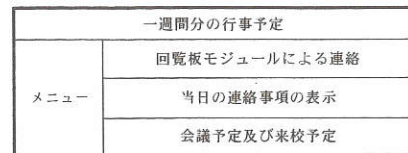 一週間分の行事予定
回覧板モジュールによる連絡
メニュー
当日の連絡事項の表示
会議予定及び来校予定